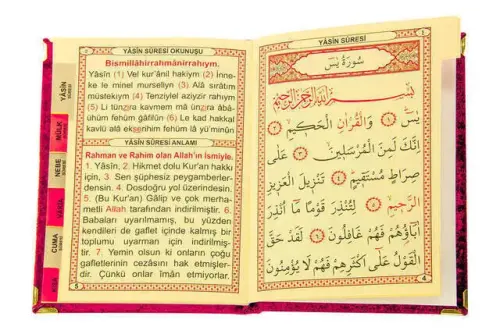 YÂSÎN SÛRESİ OKUNUŞU
Bismillâhirrahmânirrahıym.
Yâsîn (1) Vel kur'ânil hakiym (2) İnne-
ke le minel murseliyn (3) Alâ sırâtım
müstekıym (4) Tenziylel aziyzir rahıym
(5) Li tünzira kavmem mâ ünzira âbâ-
ühum fehüm gâfilûn (6) Le kad hakkal
kavlü alâ ekserihim fehüm lâ yü'minûn
YÂSÎN SÛRESİ ANLAMI
Rahman ve Rahim olan Allah'ın ismiyle.
1. Yâsîn. 2. Hikmet dolu Kur'an hakkı
için, 3. Sen şüphesiz peygamberler-
densin. 4. Dosdoğru yol üzerindesin.
5. (Bu Kur'an) Gâlip ve çok merha-
metli Allah tarafından indirilmiştir. 6.
Babaları uyarılmamış, bu yüzden
kendileri de gaflet içinde kalmış bir
toplumu uyarman için indirilmiş-
tir. 7. Yemin olsun ki onların çoğu
gafletlerinin cezasını hak etmişler-
dir. Çünkü onlar iman etmiyorlar.
5
YÂSÎN
SÛRESİ
MÜLK
NEBE
SÛRESİ
CUMA
SÛRESİ
YÂSÎN SÛRESİ
سُورَةُ يٰسٓ
بِسْمِ اللّٰهِ الرَّحْمٰنِ الرَّحِيمِ
يٰسٓ ﴿١﴾ وَالْقُرْاٰنِ الْحَكِيمِ ﴿٢﴾
اِنَّكَ لَمِنَ الْمُرْسَلِينَ ﴿٣﴾ عَلٰى
صِرَاطٍ مُسْتَقِيمٍ ﴿٤﴾ تَنْزِيلَ الْعَزِيزِ
الرَّحِيمِ ﴿٥﴾ لِتُنْذِرَ قَوْمًا مَٓا اُنْذِرَ
اٰبَٓاؤُهُمْ فَهُمْ غَافِلُونَ ﴿٦﴾ لَقَدْ حَقَّ
الْقَوْلُ عَلٰٓى اَكْثَرِهِمْ فَهُمْ لَا يُؤْمِنُونَ
4